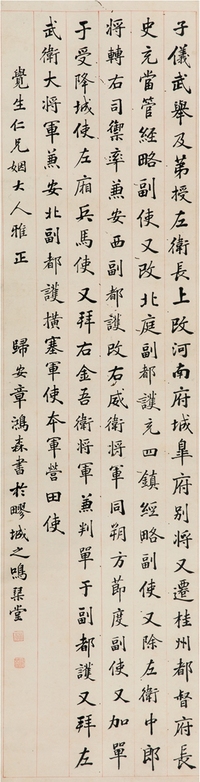 子儀武舉及第授左衛長上改河南府城皐府別將又遷桂州都督府長
史充當管經略副使又改北庭副都護充四鎮經略副使又除左衛中郎
將轉右司禦率兼安西副都護改右威衛將軍同朔方節度副使又加單
于受降城使左廂兵馬使又拜右金吾衛將軍兼判單于副都護又拜左
武衛大將軍兼安北副都護橫塞軍使本軍營田使
覺生仁兄姻大人雅正
歸安章鴻森書於郢城之鳴琹堂